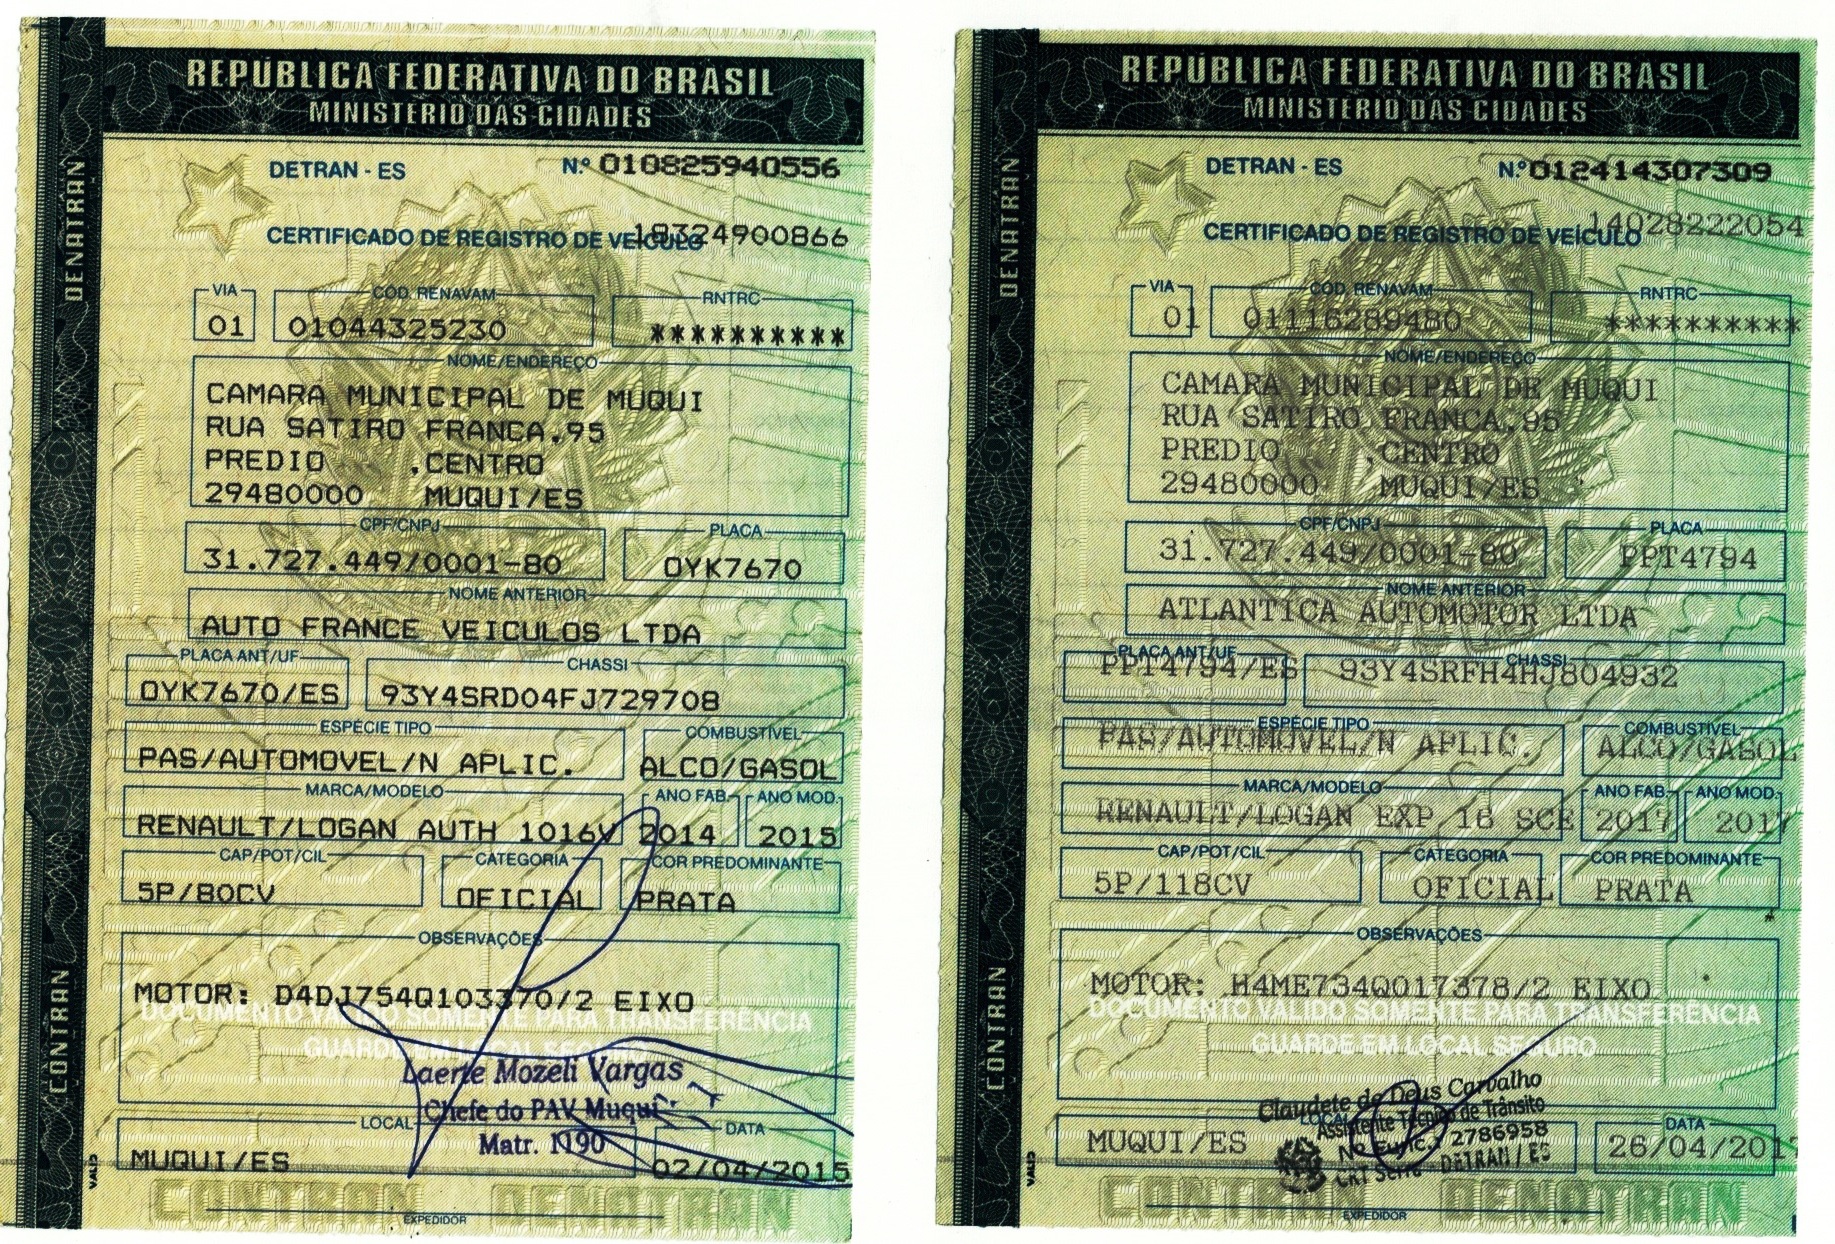 REPÚBLICA FEDERATIVA DO BRASIL
MINISTÉRIO DAS CIDADES
DENATRAN
CONTRAN
DETRAN - ES
N.º 010825940556
CERTIFICADO DE REGISTRO DE VEÍCULO
18324900866
VIA
01
CÓD. RENAVAM
01044325230
RNTRC
**********
NOME/ENDEREÇO
CAMARA MUNICIPAL DE MUQUI
RUA SATIRO FRANCA,95
PREDIO ,CENTRO
29480000 MUQUI/ES
CPF/CNPJ
31.727.449/0001-80
PLACA
OYK7670
NOME ANTERIOR
AUTO FRANCE VEICULOS LTDA
PLACA ANT/UF
OYK7670/ES
CHASSI
93Y4SRD04FJ729708
ESPÉCIE TIPO
PAS/AUTOMOVEL/N APLIC.
COMBUSTÍVEL
ALCO/GASOL
MARCA/MODELO
RENAULT/LOGAN AUTH 1016V
ANO FAB.
2014
ANO MOD.
2015
CAP/POT/CIL
5P/80CV
CATEGORIA
OFICIAL
COR PREDOMINANTE
PRATA
OBSERVAÇÕES
MOTOR: D4DJ754Q103370/2 EIXO
DOCUMENTO VÁLIDO SOMENTE PARA TRANSFERÊNCIA
GUARDE EM LOCAL SEGURO
Laerte Mozeli Vargas
Chefe do PAV Muqui
Matr. 1190
LOCAL
MUQUI/ES
DATA
02/04/2015
VALID
CONTRAN DENATRAN
EXPEDIDOR
REPÚBLICA FEDERATIVA DO BRASIL
MINISTÉRIO DAS CIDADES
DENATRAN
CONTRAN
DETRAN - ES
N.º 012414307309
CERTIFICADO DE REGISTRO DE VEÍCULO
14028222054
VIA
01
CÓD. RENAVAM
01116289480
RNTRC
**********
NOME/ENDEREÇO
CAMARA MUNICIPAL DE MUQUI
RUA SATIRO FRANCA,95
PREDIO ,CENTRO
29480000 MUQUI/ES
CPF/CNPJ
31.727.449/0001-80
PLACA
PPT4794
NOME ANTERIOR
ATLANTICA AUTOMOTOR LTDA
PLACA ANT/UF
PPT4794/ES
CHASSI
93Y4SRFH4HJ804932
ESPÉCIE TIPO
PAS/AUTOMOVEL/N APLIC.
COMBUSTÍVEL
ALCO/GASOL
MARCA/MODELO
RENAULT/LOGAN EXP 16 SCE
ANO FAB.
2017
ANO MOD.
2017
CAP/POT/CIL
5P/118CV
CATEGORIA
OFICIAL
COR PREDOMINANTE
PRATA
OBSERVAÇÕES
MOTOR: H4ME734Q017378/2 EIXO
DOCUMENTO VÁLIDO SOMENTE PARA TRANSFERÊNCIA
GUARDE EM LOCAL SEGURO
Claudete de Deus Carvalho
Assistente Técnico de Trânsito
Nº Func.: 2786958
CRT Serra - DETRAN / ES
LOCAL
MUQUI/ES
DATA
26/04/2017
VALID
CONTRAN DENATRAN
EXPEDIDOR